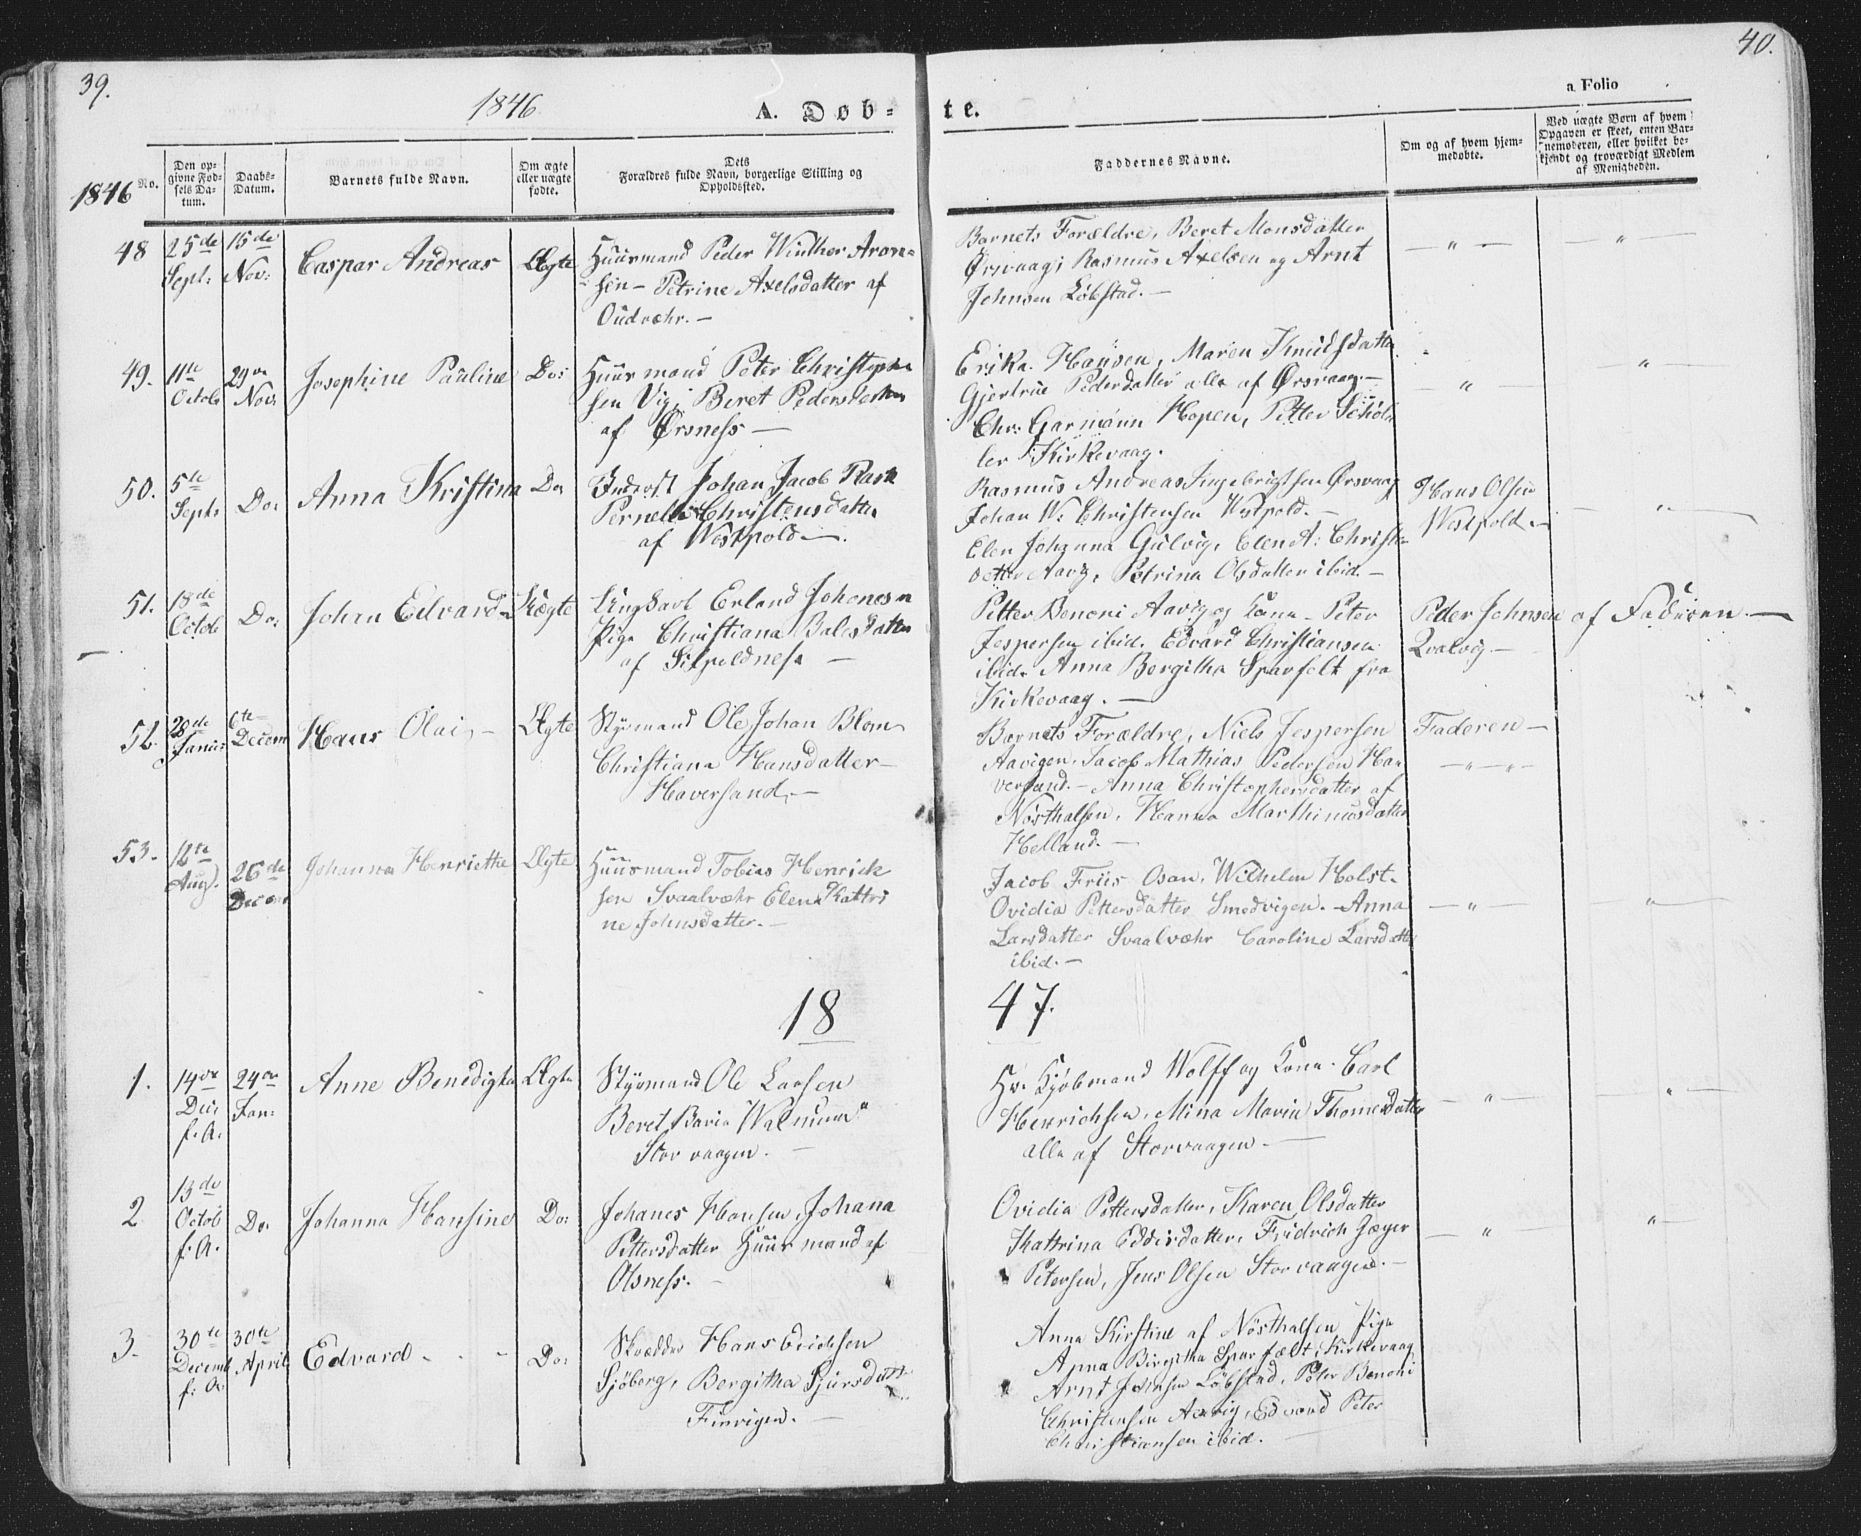 39.
40.
1846
A. Døb-
te.
a Folio
1846
No.
Den op-
givne Fød-
sels Da-
tum.
Daabs-
Datum.
Barnets fulde Navn.
Om ægte
eller uægte
fødte.
Dets
Forældres fulde Navn, borgerlige Stilling og
Opholdssted.
Faddernes Navne.
Om og af hvem hjem-
medøbte.
Ved uægte Børn af hvem
Opgaven er skeet, enten Bar-
nemoderen, eller hvilket be-
kjendt og troværdigt Medlem
af Menigheden.
48
25de
Sept:
15de
Nov:
Caspar Andreas
Ægte
Huusmand Peder Winther Aron-
sen - Petrine Axelsdatter af
Oudvæhr. -
Barnets Forældre, Beret Monsdatter
Ørsvaag, Rasmus Axelsen og Arnt
Johnsen Løbstad. -
49.
11te
Octob
29de
Nov:
Josephine Pauline
Do:
Huusmand Peter Christoph
sen Vig, Beret Pedersdatter
af Ørsness -
Erika Hansen, Maren Knudsdatter
Gjertrue Pedersdatter alle af Ørsvaag -
Chr: Garmann Hopen, Petter Schøl-
ler Kirkevaag.
50.
5te
Sept:
Do:
Anna Kristina
Do:
Inderst Johan Jacob Rask
Pernelle Christensdatter
af Westpold -.
Rasmus Andreas Ingebrigtsen Ørsvaag
Johan W: Christensen Westpold. -
Elen Johanna Gulvig, Elen A: Christen
datter Aavig, Petrina Olsdatter ibid. -
Hans Olsen
Westpold -
51.
18de
Octob
Do:
Johan Edvard
Uægte
Ungkarl Erland Johnesen
Pige Christiana Balesdatter
af Sikpoldness -
Petter Benoni Aavig og Kona - Peter
Jespersen ibid. Edvard Christiansen
ibid. Anna Bergitha Sparfelt fra
Kirkevaag. -
Peder Johnsen
Qvalvig -
af Faderen. -
52.
28de
Junii
6te
Decem
Hans Olai, -
Ægte
Styrmand Ole Johan Blom
Christiana Hansdatter
Haversand, -
Barnets Forældre, Niels Jespersen
Aavigen, Jacob Mathias Pedersen Ha
versand. - Anna Christophersdatter af
Nøsthalsen, Hanna Marthinusdatter
Helland. -
Faderen -
53.
12te
Aug.
26de
Decem
Johanna Henriette
Ægte
Huusmand Tobias Henrick
sen Svaalvæhr Elen Kattri
ne Johnsdatter. -
Jacob Friis Osan, Wilhelm Holst.
Ovidia Pettersdatter Smedvigen. - Anna
Larsdatter Svaalvæhr Caroline Larsdatter
ibid. -
18
47.
1.
14de
Dec:
f: A.
24de
Jan:
Anne Benedigta
Ægte
Styrmand Ole Larsen
Beret Maria Walnum
Storvaagen. -
Hr. Kjøbmand Wolff og Kona. Carl
Henrichsen, Mina Maria Thomesdatter
alle af Storvaagen. -
2
13de
Octob
f: A.
Do.
Johanna Hansine
Do:
Johanes Hansen, Johana
Pettersdatter Huusmand af
Olsness. -
Ovidia Pettersdatter, Karen Olsdatter
Kattrina Eddisdatter, Fridrich Jæger
Petersen, Jens Olsen Storvaagen. -
3.
30te
Decemb
f: A.
30te
April
Edvard
Do:
Skrædder Hans Erichsen
Sjöberg, Bergitha Sjursdatt
Finvigen. -
Anna Kirstine af Nøsthalsen Pige
Anna Birgitha Sparfælt, Kirkevaag
Arnt Johnsen Løbstad, Peter Benoni
Christensen Aavig, Edvard Peter
Christiansen ibid.